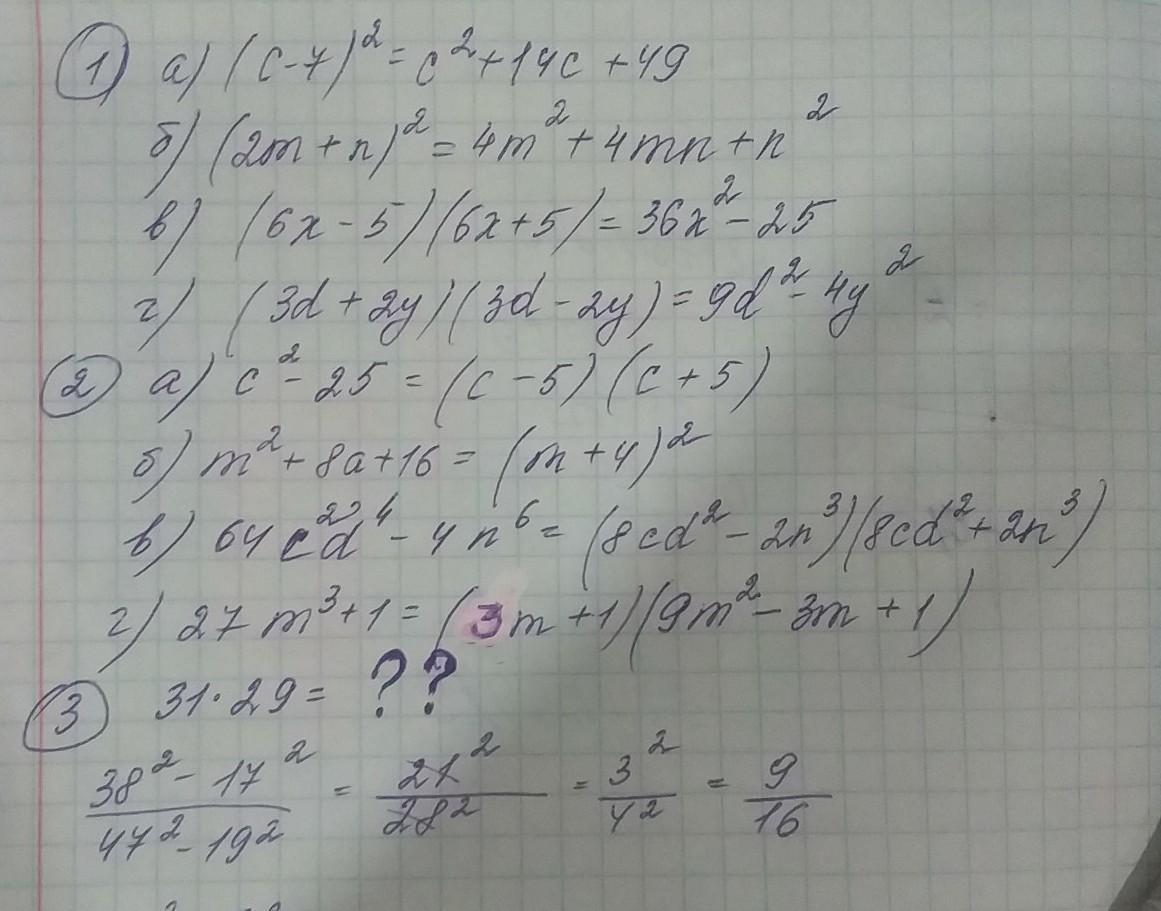 1) а) (c-7)² = c² + 14c + 49
б) (2m + n)² = 4m² + 4mn + n²
в) (6x - 5)(6x + 5) = 36x² - 25
г) (3d + 2y)(3d - 2y) = 9d² - 4y²
2) а) c² - 25 = (c - 5)(c + 5)
б) m² + 8a + 16 = (m + 4)²
в) 64c²d⁴ - 4n⁶ = (8cd² - 2n³)(8cd² + 2n³)
г) 27m³ + 1 = (3m + 1)(9m² - 3m + 1)
3) 31 · 29 = ??
(38² - 17²)/(47² - 19²) = 21²/28² = 3²/4² = 9/16